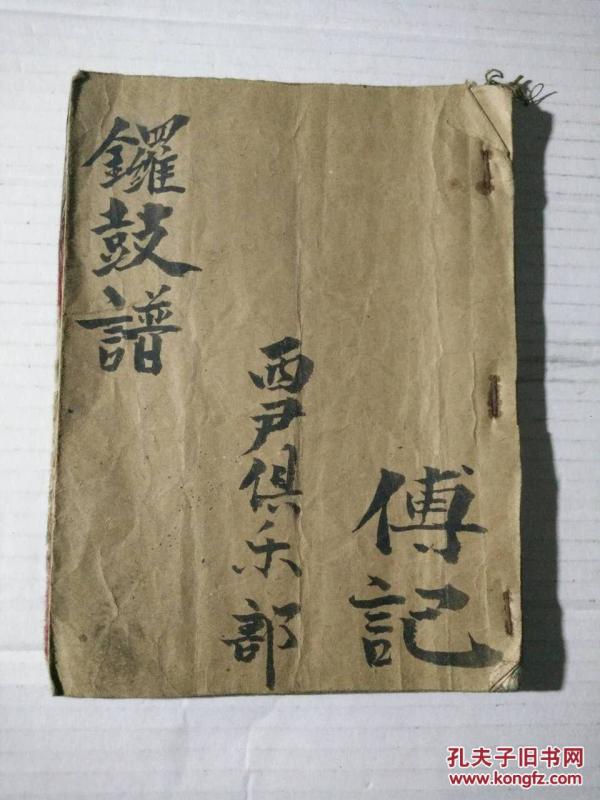 鑼鼓譜
西尹俱乐部
傅記
孔夫子旧书网
www.kongfz.com